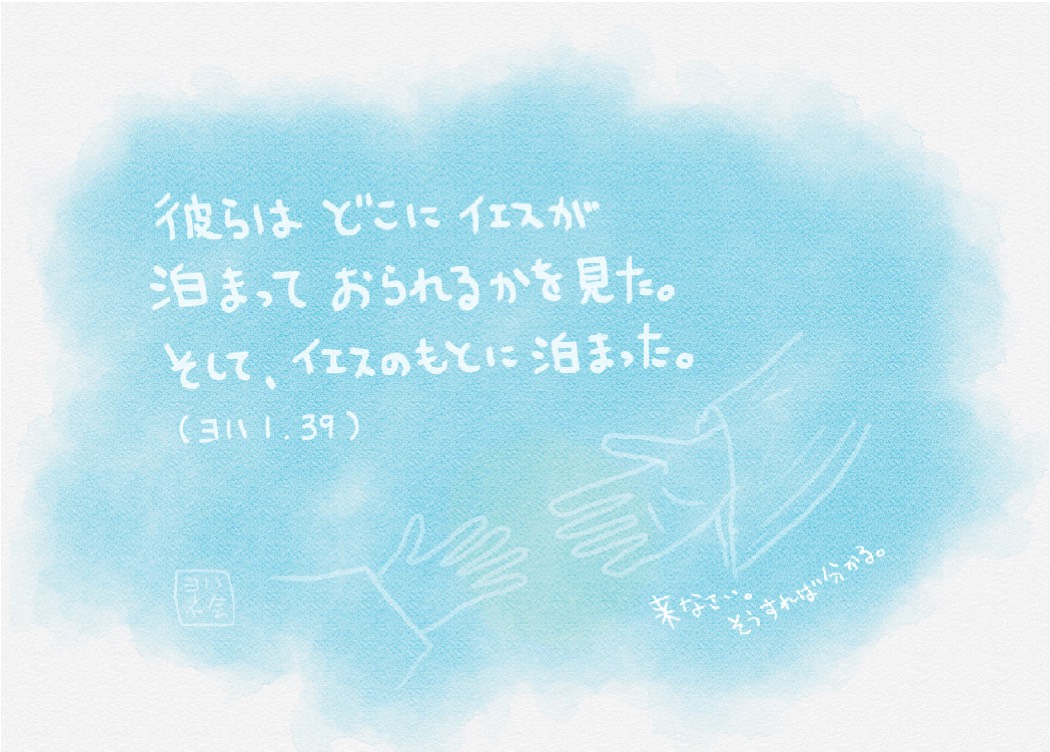 彼らは どこに イエスが
泊まって おられるかを見た。
そして、イエスのもとに 泊まった。
（ヨハ 1.39）
来なさい。
そうすれば分かる。